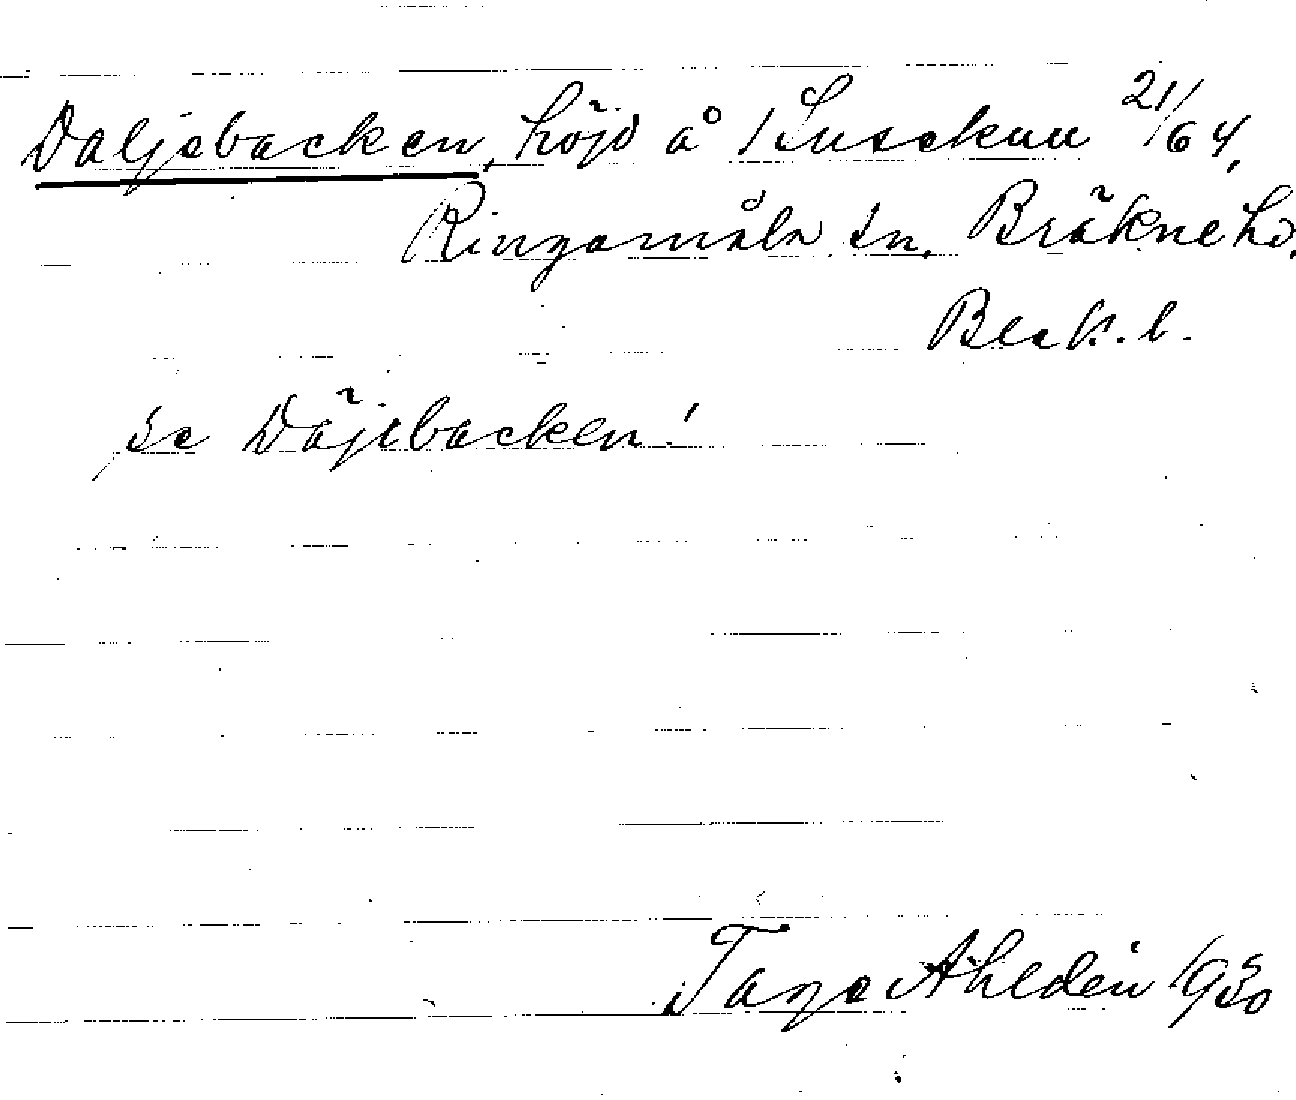 Daljebacken, höjd å 1 Snsekuu 21/64,
Ringamåla sn, Bräkne hd.
Blek. l.
se Däjebacken!
Tage Ahldén 1950